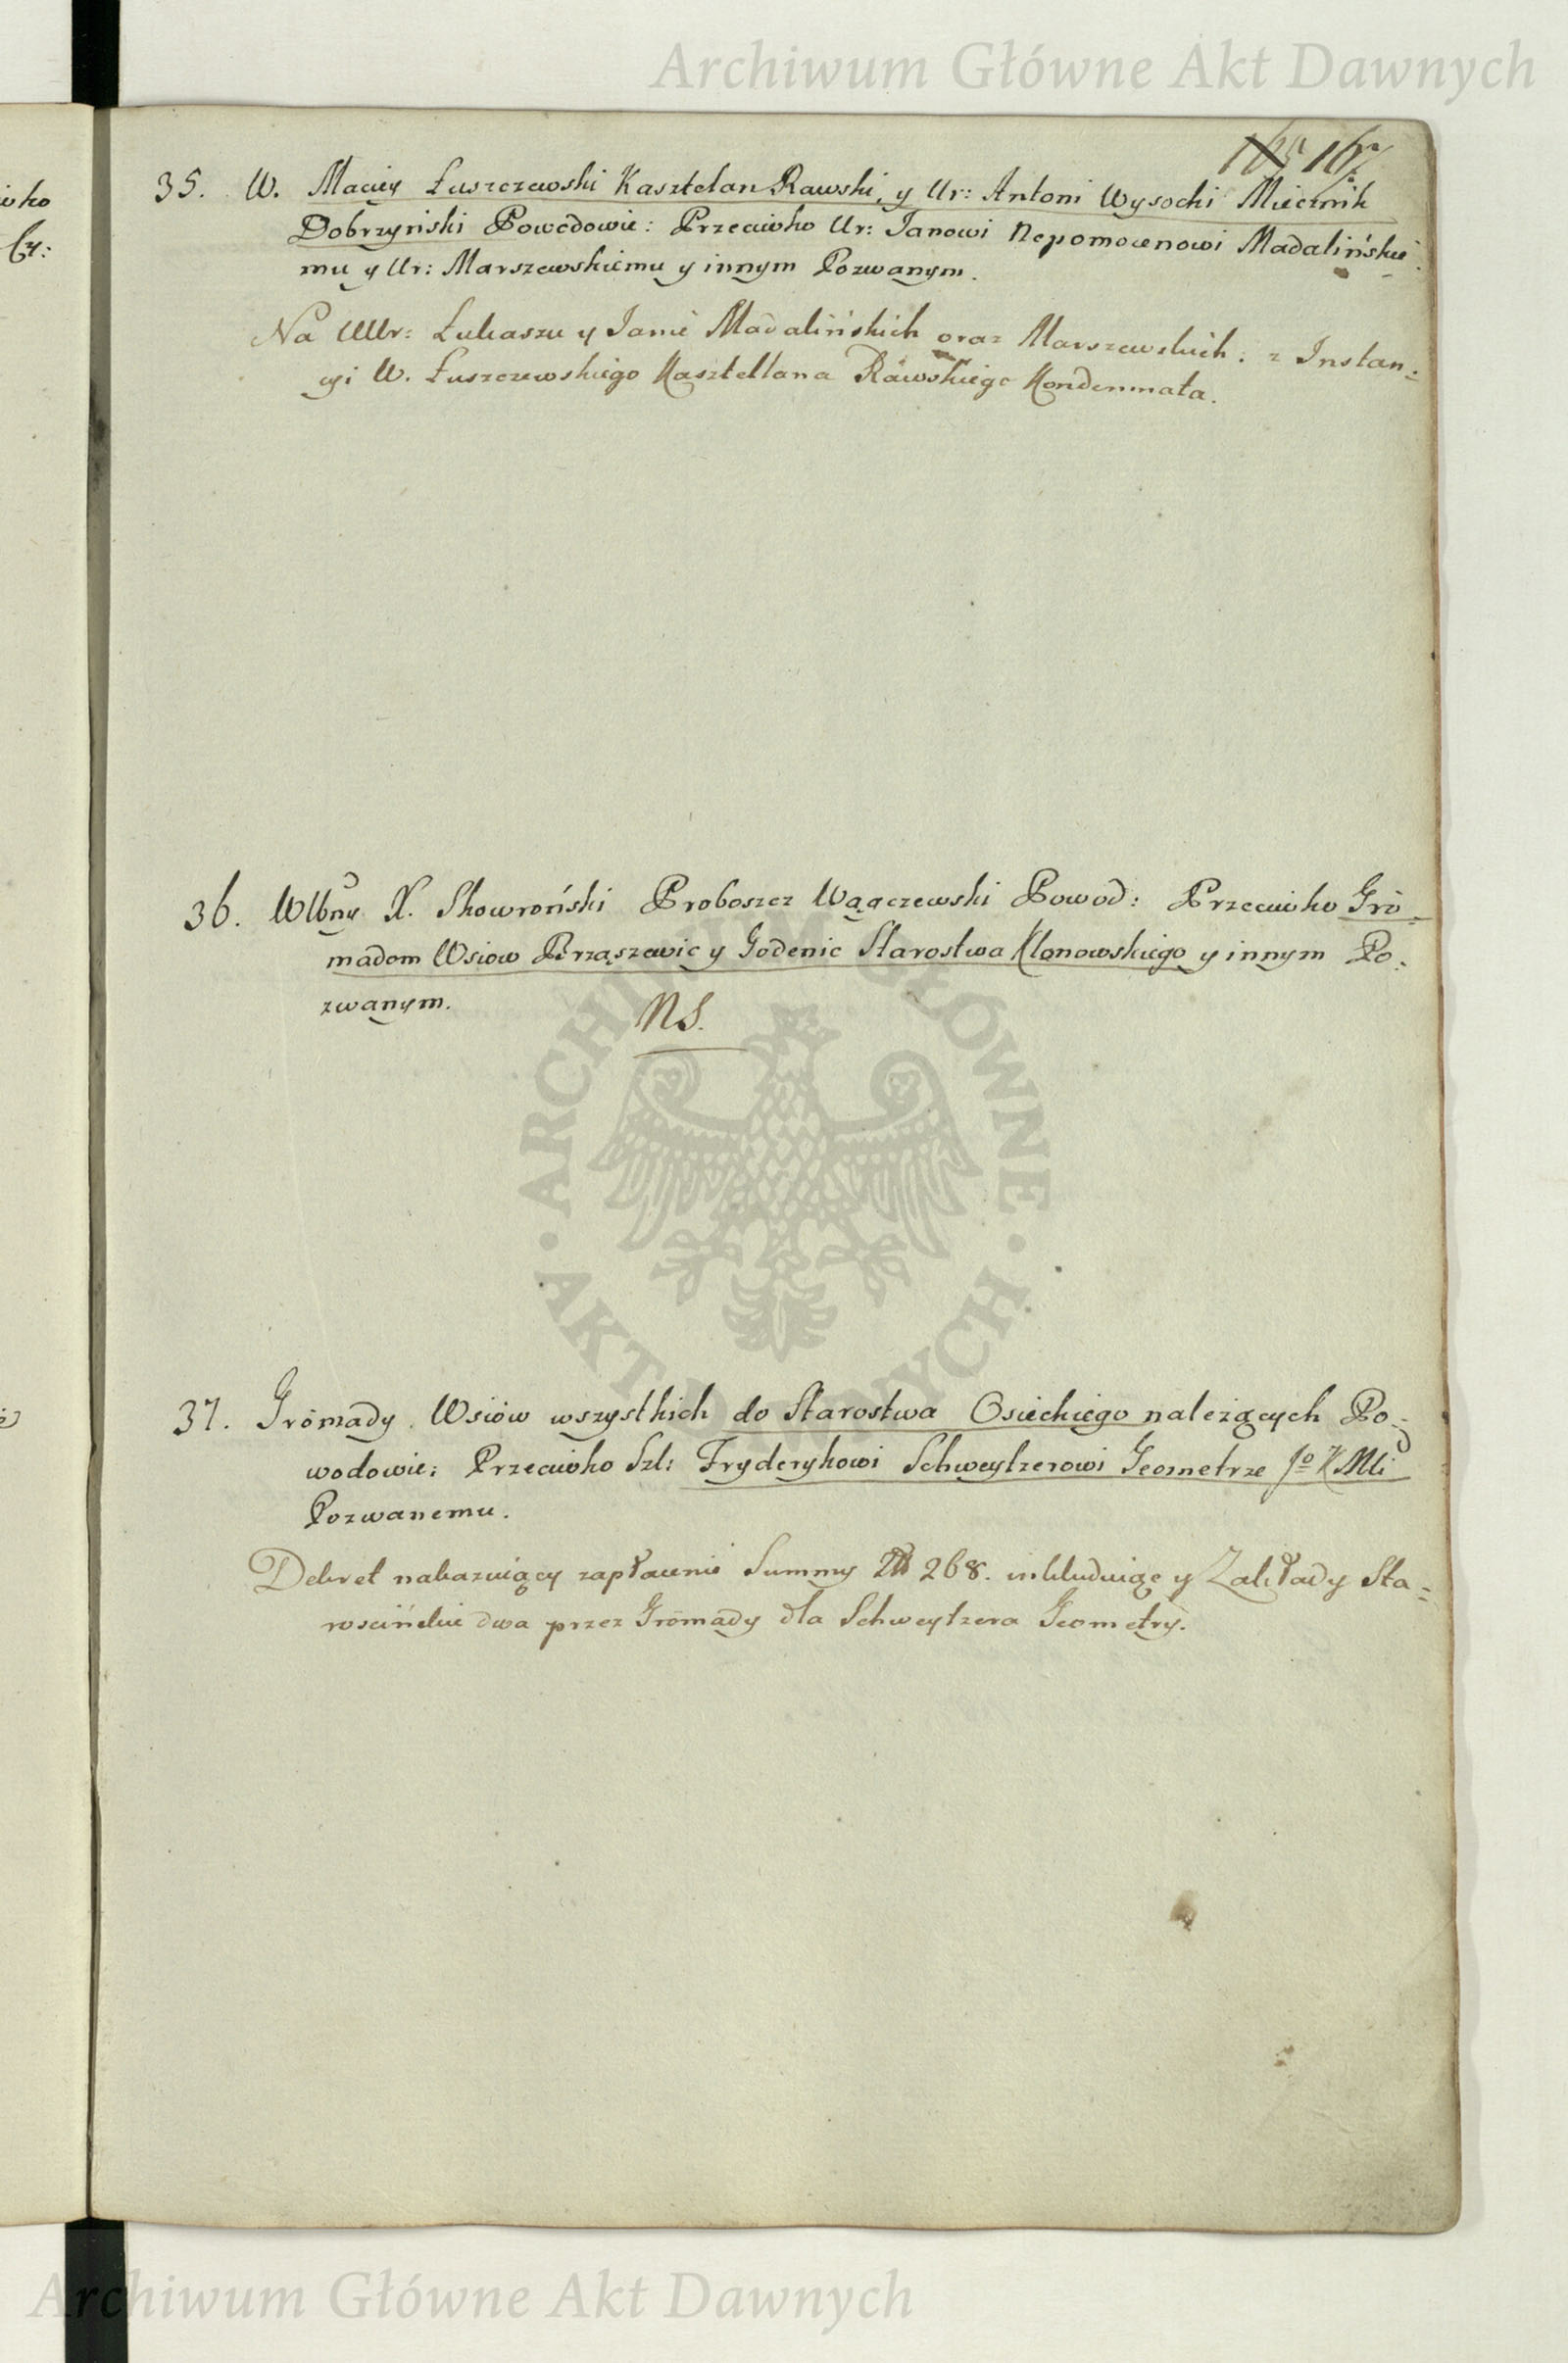 Archiwum Główne Akt Dawnych
165 167
35. W. Maciey Łuszczewski Kasztelan Rawski, y Ur: Antoni Wysocki Miecznik
Dobrzyński Powodowie: Przeciwko Ur: Janowi Nepomocenowi Madalińskie
mu y Ur: Marszewskiemu y innym Pozwanym.
Na UUr: Łukaszu y Janie Madalińskich oraz Marszewskich. z Instan:
cyi W. Łuszczewskiego Kasztellana Rawskiego Kondemnata.
36. Wlbny X. Skowroński Proboszcz Wągczewski Powod: Przeciwko Gro-
madom Wsiow Brząszewic y Godenic Starostwa Klonowskiego y innym Po:
zwanym.
NS.
ARCHIWUM GŁÓWNE · AKT DAWNYCH ·
37. Gromady Wsiow wszystkich do Starostwa Osieckiego należących Po-
wodowie: Przeciwko Szl: Fryderykowi Schweytzerowi Geometrze Jo K Mci
Pozwanemu.
Dekret nakazuiący zapłacenie Summy 268. inkluduiąc y Zakłady Sta=
rościńskie dwa przez Gromady dla Schweytzera Geometry.
Archiwum Główne Akt Dawnych